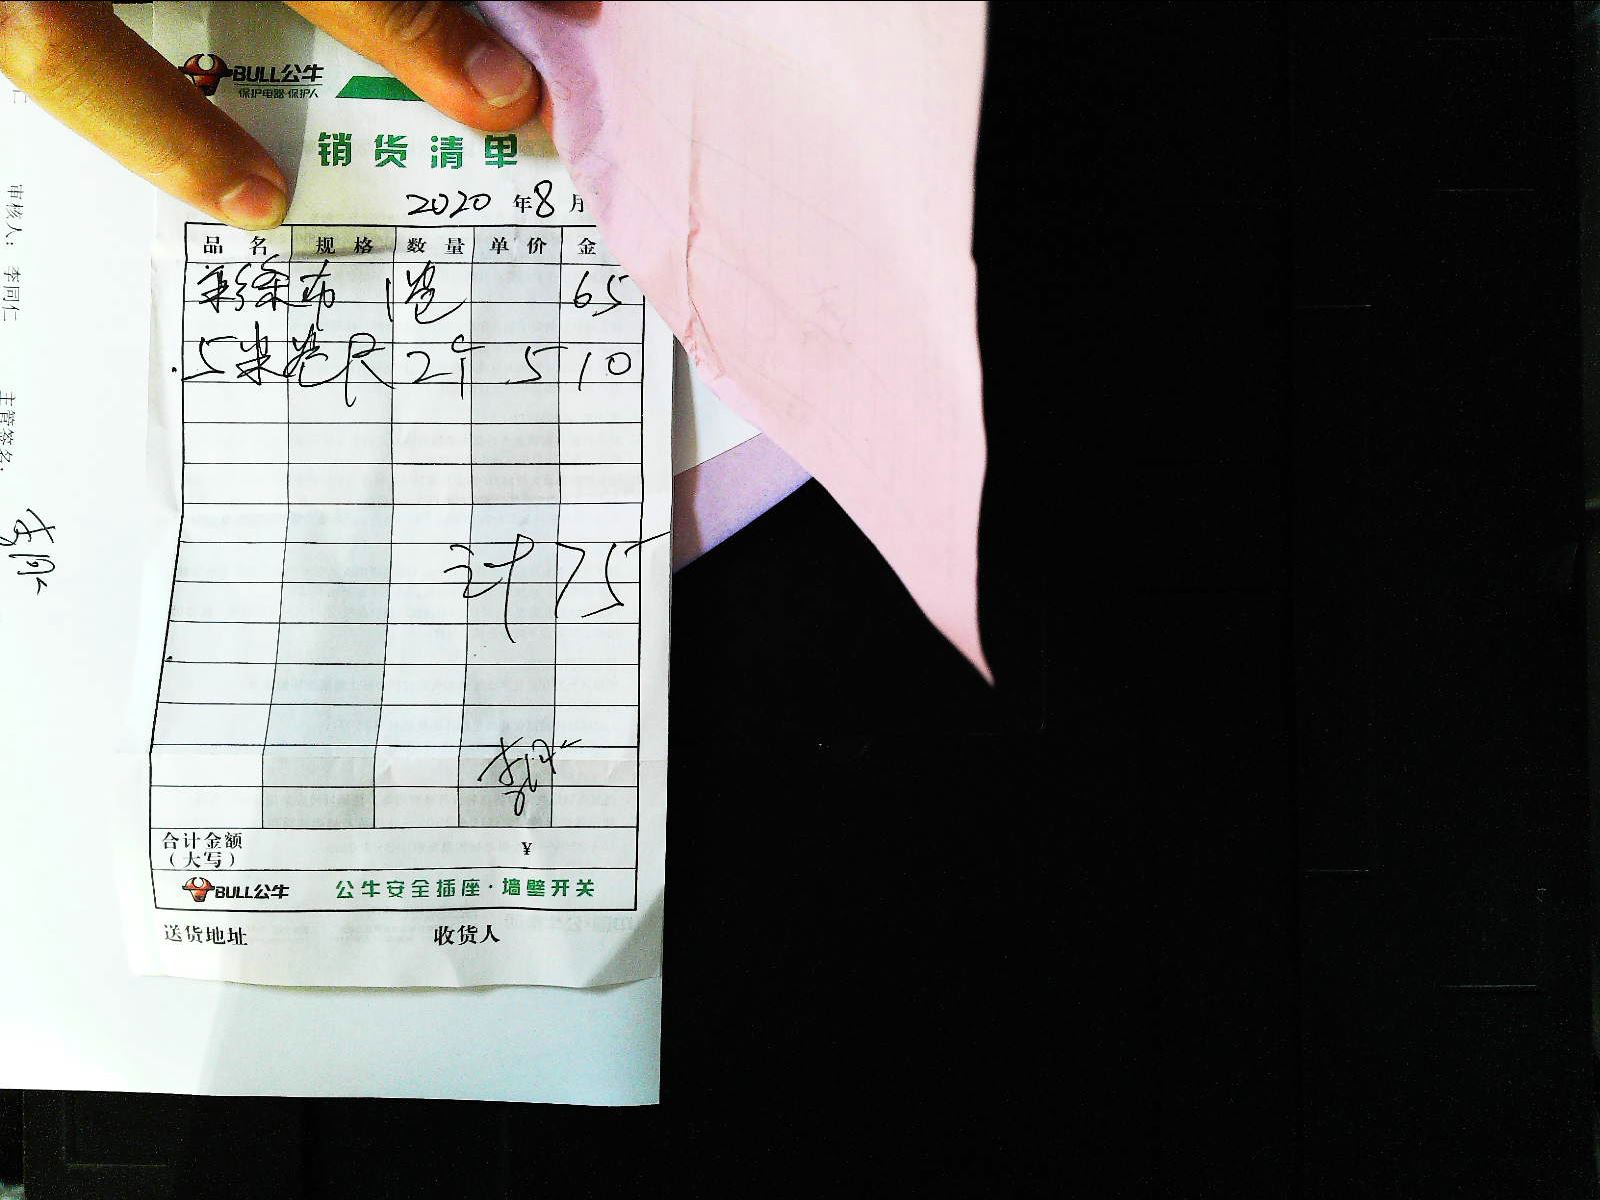 BULL公牛
保护电器·保护人
销货清单
2020 年 8 月
品名 规格 数量 单价 金
彩条布 1卷 65
5米卷尺 2个 5 10
计 75
合计金额
（大写） ¥
BULL公牛 公牛安全插座·墙壁开关
送货地址 收货人
审核人： 李同仁
主管签名：